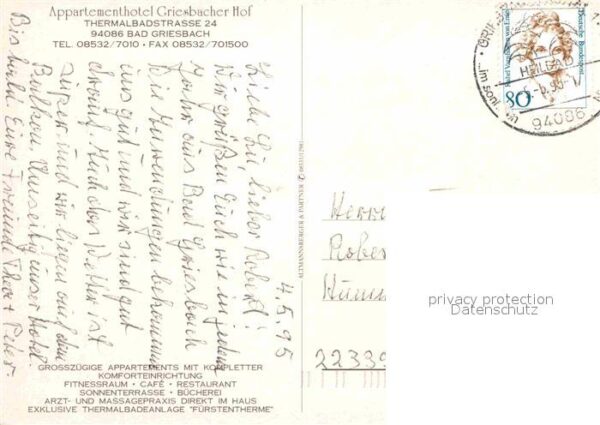 Appartementhotel Griesbacher Hof
THERMALBADSTRASSE 24
94086 BAD GRIESBACH
TEL. 08532/7010 • FAX 08532/701500
4.5.95
Liebe Lu, lieber Robert!
Wir grüßen Euch wie in jedem
Jahr aus Bad Griesbach
Die Anwendungen bekommen
uns gut und wir sind gut
drauf. Auch das Wetter ist
super und wir liegen auf dem
Balkon. Umseitig unser Hotel.
Bis bald. Eure Freunde Thea + Peter
GROSSZÜGIGE APPARTEMENTS MIT KOMPLETTER
KOMFORTEINRICHTUNG
FITNESSRAUM • CAFÉ • RESTAURANT
SONNENTERRASSE • BÜCHEREI
ARZT- UND MASSAGEPRAXIS DIREKT IM HAUS
EXKLUSIVE THERMALBADEANLAGE "FÜRSTENTHERME"
ALTMANNSBERGER & PARTNER
Deutsche Bundespost
80
HEILBAD
94086
Herr
Rober
22339
privacy protection
Datenschutz